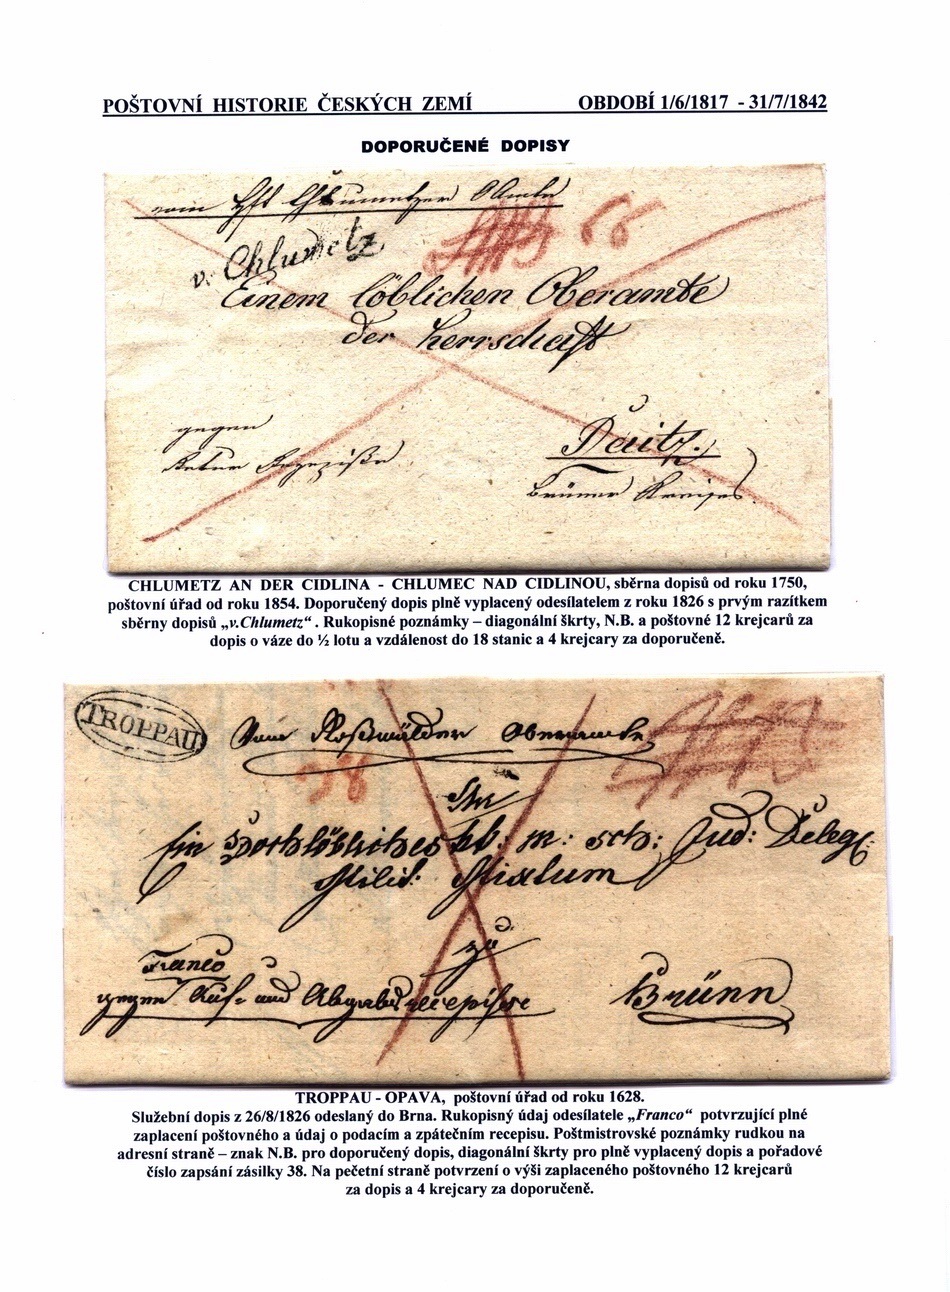 POŠTOVNÍ HISTORIE ČESKÝCH ZEMÍ OBDOBÍ 1/6/1817 - 31/7/1842
DOPORUČENÉ DOPISY
vom Chlumetzer
66
v. Chlumetz
Einem löblichen Oberamte
der Herrschaft
gegen
Retour
Pautz.
Brünner Kreises
CHLUMETZ AN DER CIDLINA - CHLUMEC NAD CIDLINOU, sběrna dopisů od roku 1750,
poštovní úřad od roku 1854. Doporučený dopis plně vyplacený odesílatelem z roku 1826 s prvým razítkem
sběrny dopisů „v.Chlumetz“ . Rukopisné poznámky – diagonální škrty, N.B. a poštovné 12 krejcarů za
dopis o váze do ½ lotu a vzdálenost do 18 stanic a 4 krejcary za doporučeně.
TROPPAU
Vom Roßwalder Oberamte
38
An
Ein Hochlöbliches kk: m: sch: Jud: Deleg:
Milit: Mixtum
zu
Franco
gegen Auf- und Abgabsrecepisse
Brünn
TROPPAU - OPAVA, poštovní úřad od roku 1628.
Služební dopis z 26/8/1826 odeslaný do Brna. Rukopisný údaj odesílatele „Franco“ potvrzující plné
zaplacení poštovného a údaj o podacím a zpátečním recepisu. Poštmistrovské poznámky rudkou na
adresní straně – znak N.B. pro doporučený dopis, diagonální škrty pro plně vyplacený dopis a pořadové
číslo zapsání zásilky 38. Na pečetní straně potvrzení o výši zaplaceného poštovného 12 krejcarů
za dopis a 4 krejcary za doporučeně.